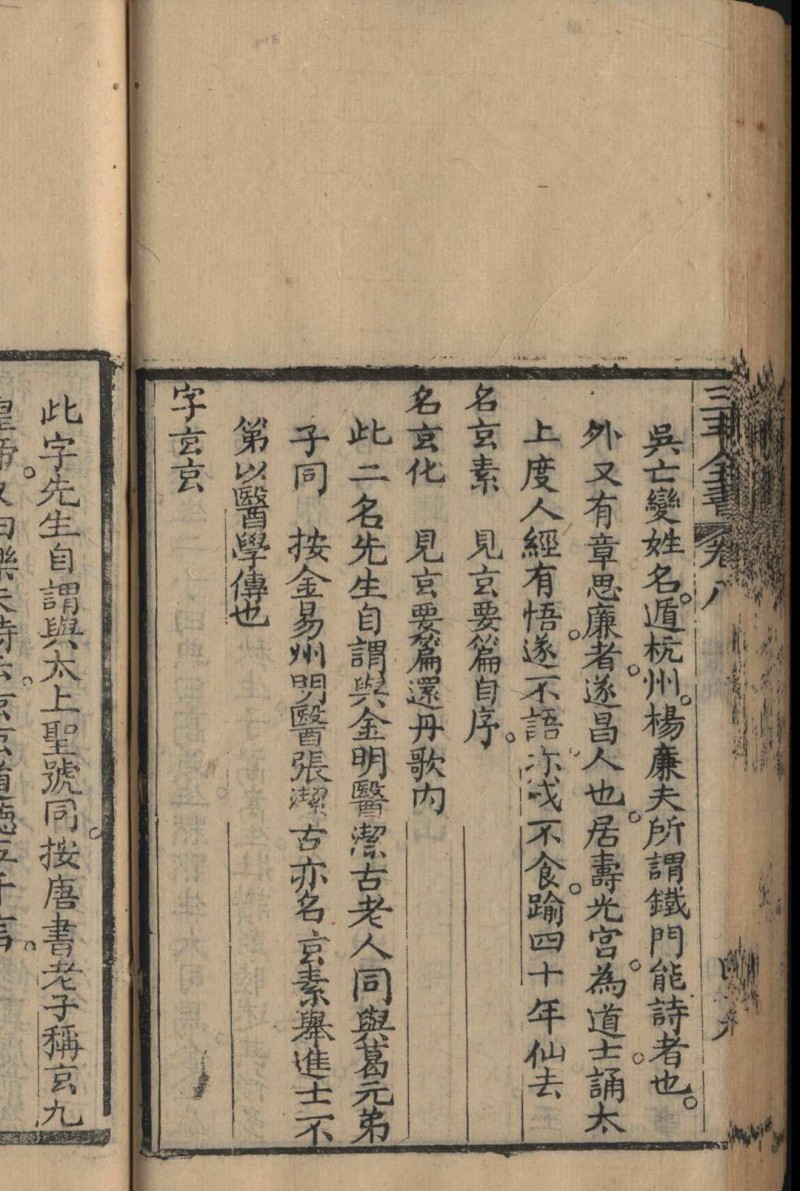 吳亡變姓名。遁杭州。楊廉夫所謂鐵門能詩者也。
外又有章思廉者。遂昌人也。居壽光宮。為道士。誦太
上度人經有悟。遂不語。亦或不食。踰四十年仙去
名玄素　見玄要篇自序。
名玄化　見玄要篇還丹歌内
此二名先生自謂與金明醫潔古老人同與葛元弟
子同　按金易州明醫張潔古亦名玄素舉進士不
第以醫學傳也
字玄玄
此字先生自謂與太上聖號同。按唐書老子稱玄九